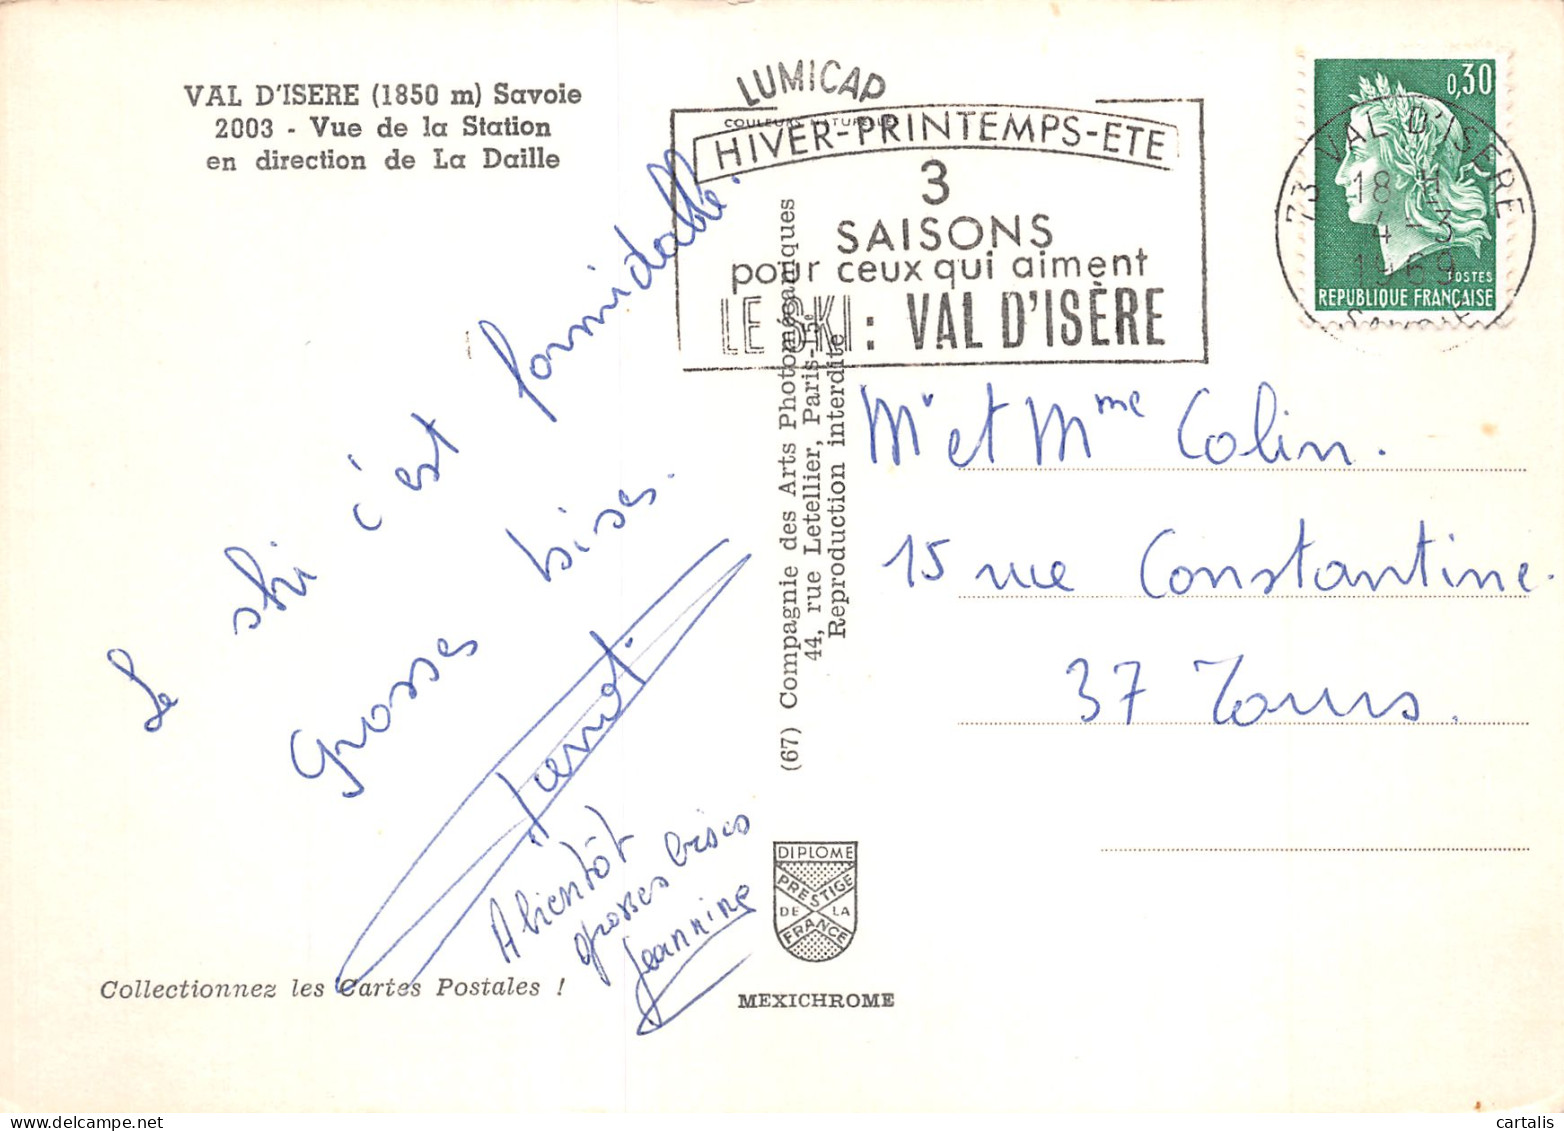 VAL D'ISERE (1850 m) Savoie
2003 - Vue de la Station
en direction de La Daille
Le ski c'est formidable.
Grosses bises.
A bientôt
grosses bises
Jeannine
Collectionnez les Cartes Postales !
LUMICAP
COULEURS NATURELLES
HIVER-PRINTEMPS-ETE
3
SAISONS
pour ceux qui aiment
LE SKI : VAL D'ISÈRE
(67) Compagnie des Arts Photomécaniques
44, rue Letellier, Paris-15e
Reproduction interdite
DIPLOME
PRESTIGE
DE LA
FRANCE
MEXICHROME
0,30
POSTES
REPUBLIQUE FRANÇAISE
73 VAL D'ISERE
18 H
4-3
1969
SAVOIE
Mr et Mme Colin.
15 rue Constantine.
37 Tours.
cartalis